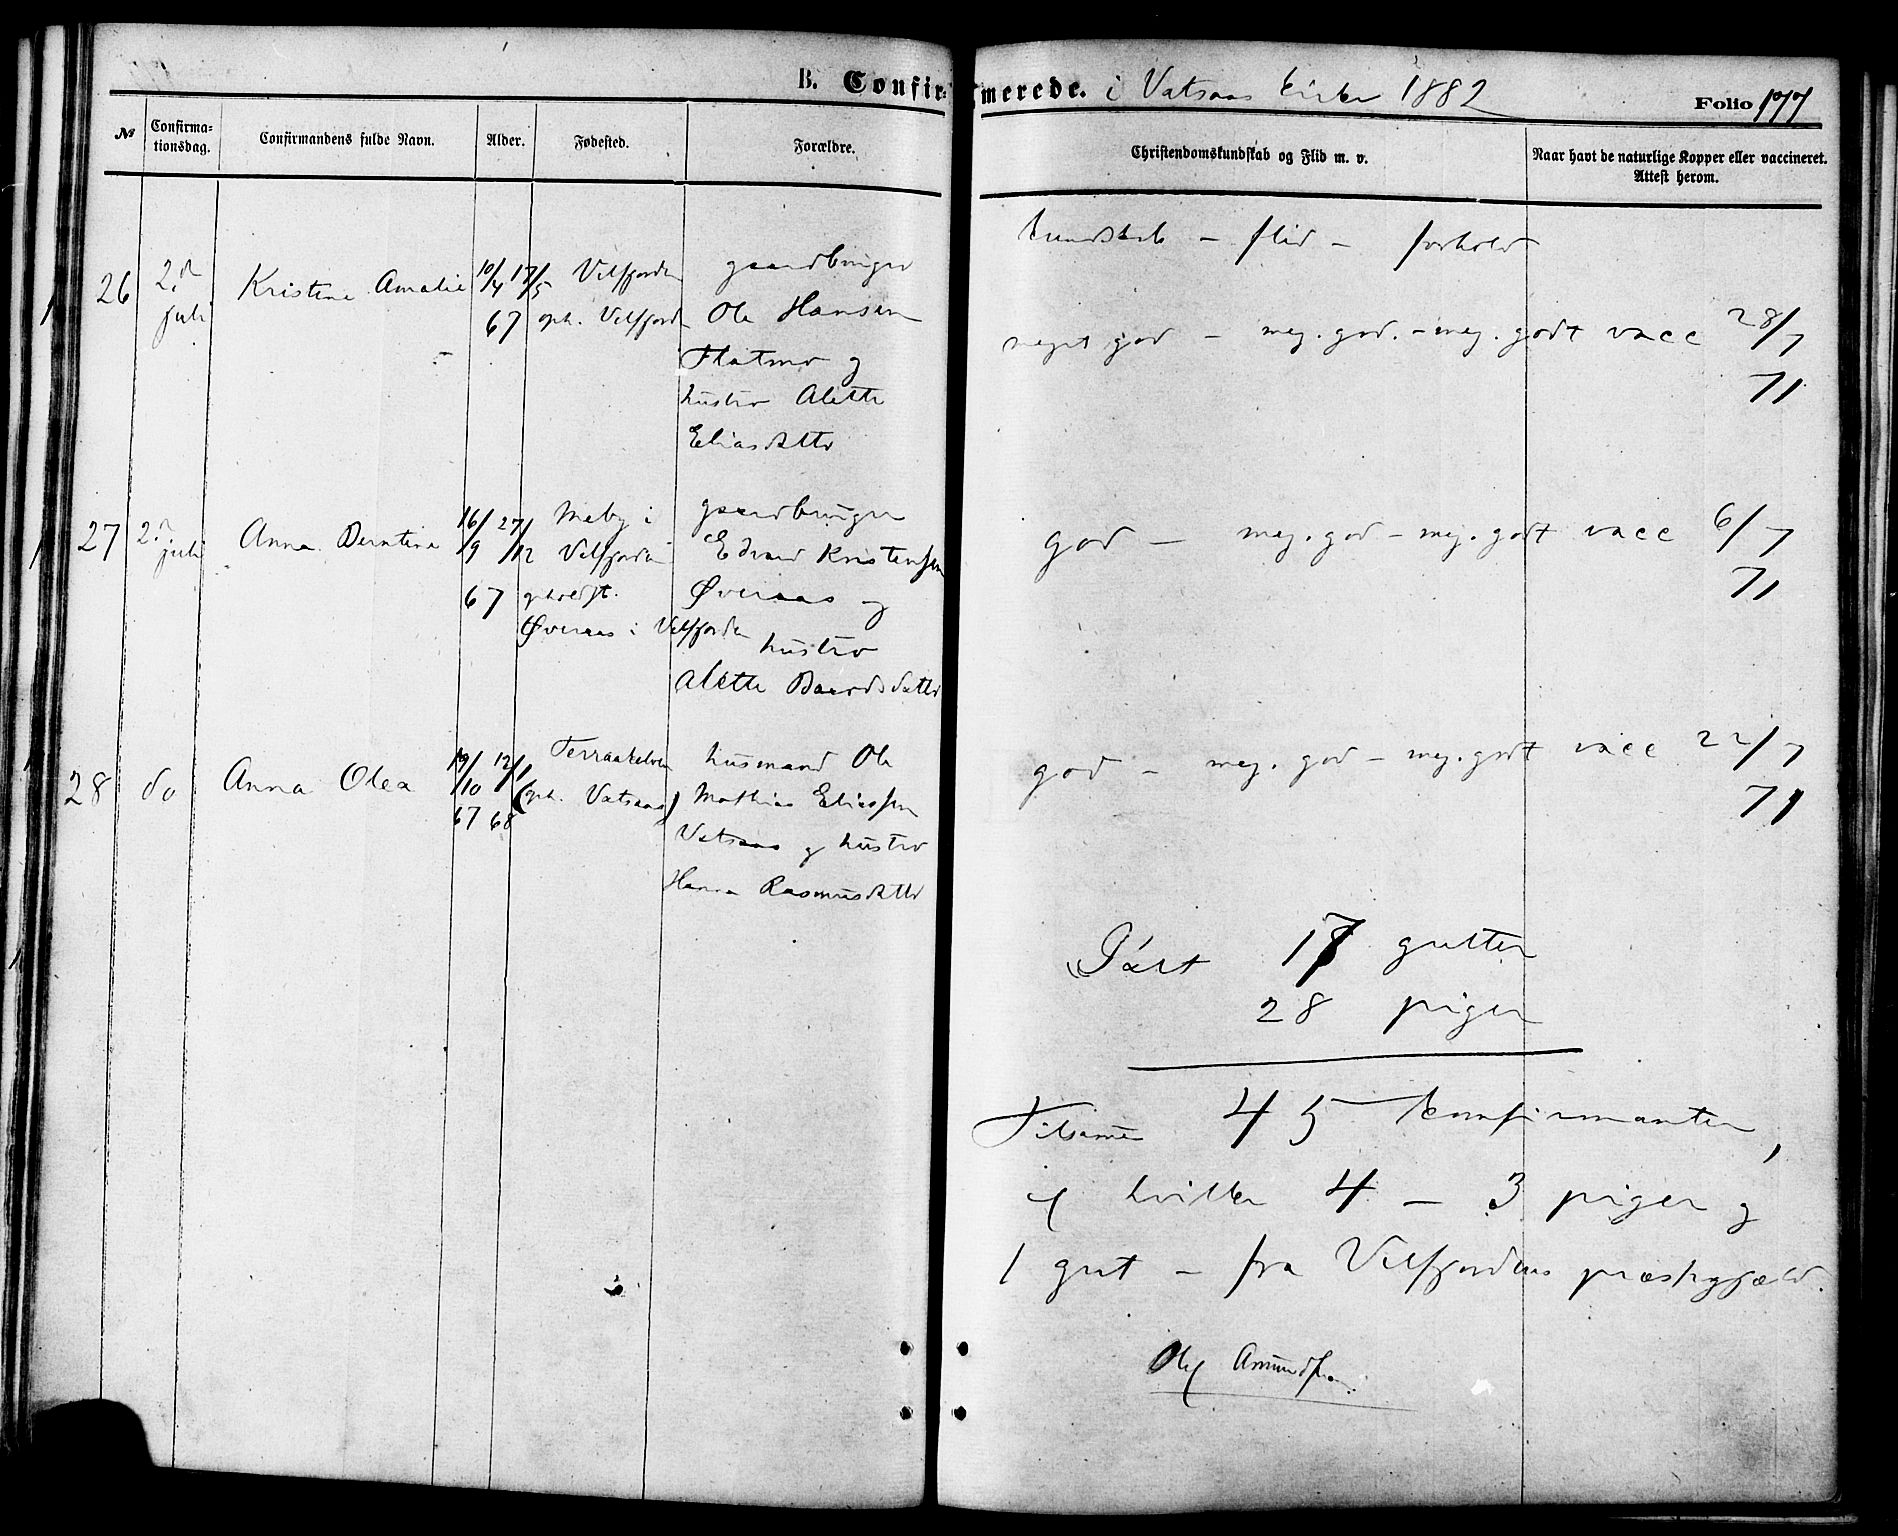 B. Confirmerede. i Vatsaas kirke 1882
Folio 177
№
Confirmationsdag.
Confirmandens fulde Navn.
Alder.
Fødested.
Forældre.
Christendomskundskab og Flid m. v.
Naar havt de naturlige Kopper eller vaccineret. Attest herom.
kundskab – flid – forhold
26
2.d juli
Kristine Amalie
10/4 17/5
67
Velfjorden
oph. Velfjord
gaardbruger
Ole Hansen
Flatmo og
hustro Alette
Eliasdatter
meget god – meg. god. – meg. godt vacc 28/7
71
27
2d juli
Anna Berntine
16/9 27/12
67
Meby i
Velfjorden
opholdst.
Øveraas i Velfjorden
gaardbruger
Edvard Kristensen
Øveraas og
hustro
Alette Baardsdatter
god – meg. god – meg. godt vacc 6/7
71
28
do
Anna Olea
19/10 12/1
67 68
Terraakelven
(oph. Vatsaas)
husmand Ole
Mathias Eliassen
Vatsaas og hustro
Hanna Rasmusdatter
god – meg. god – meg. godt vacc 22/7
71
17 gutter
28 piger
Tilsammen 45 konfirmanter,
af hvilke 4 – 3 piger og
1 gut – fra Velfjordens præstegjæld.
Ole Amundsen